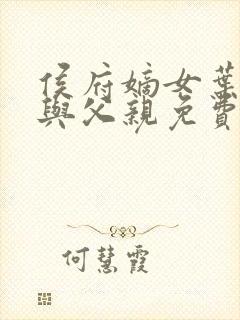 侯府嫡女葉
與父親免費
何慧霞